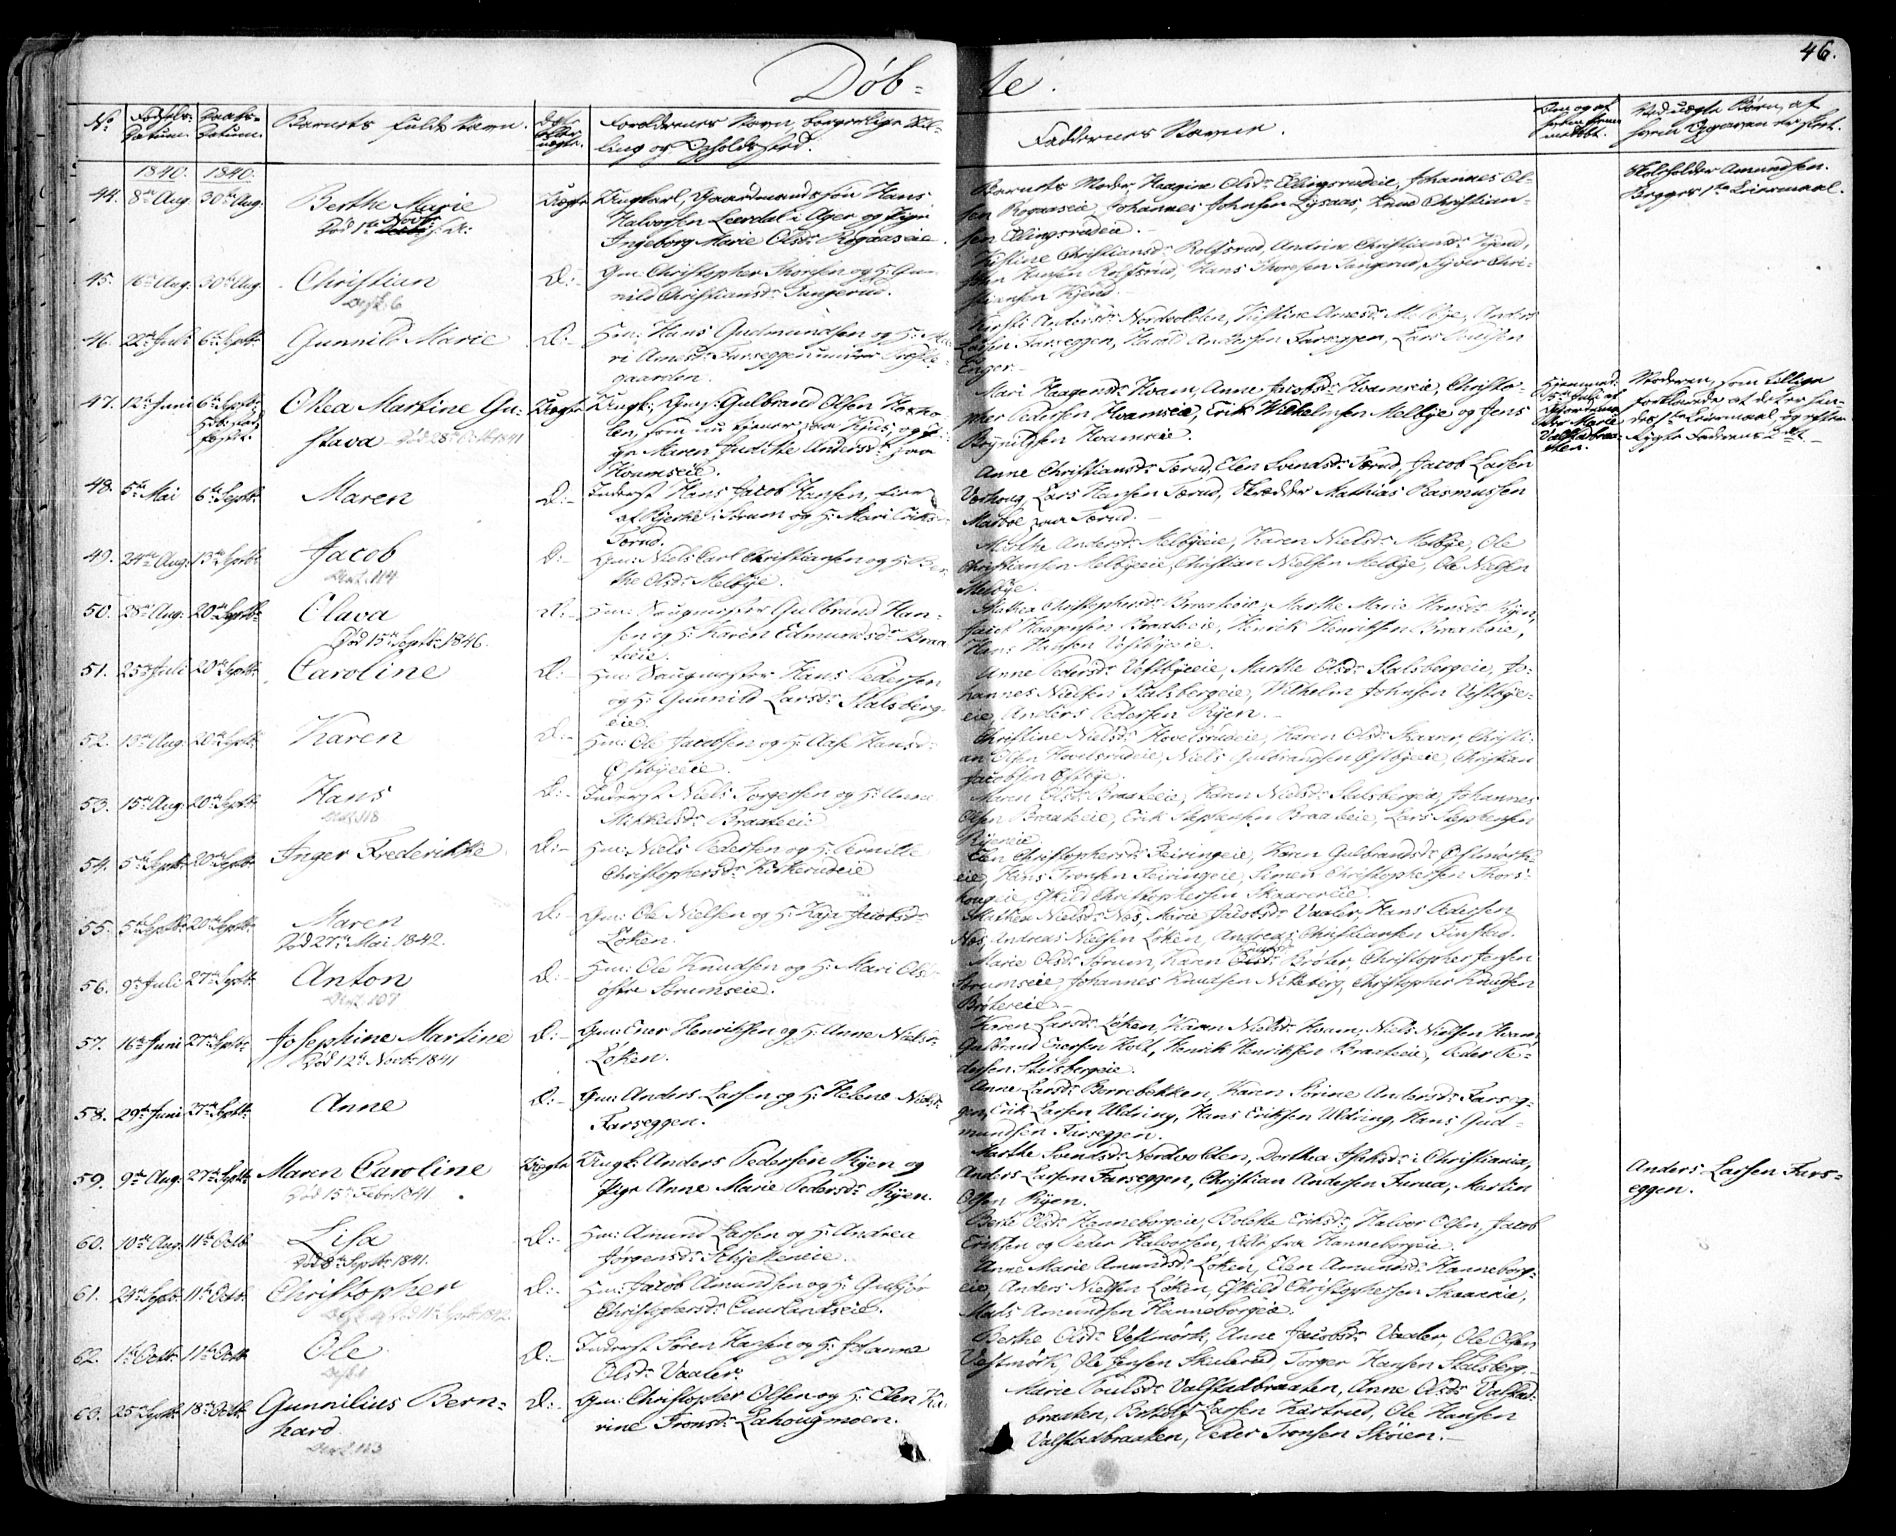 Døb-
te.
46.
No
Fødsels-
Datum.
Daabs-
Datum.
Barnets fulde Navn.
Forældrenes Navn, borgerlige Stil-
ling og Opholdssted.
Faddernes Navne.
1840. 1840.
44. 8de Aug. 30te Aug. Berthe Marie
Død 1ste
Uægte Ungkarl, Gaardmandssøn Hans
Halvorsen Leerdal i Ager og Pige
Ingeborg Marie Olsdr Rogaaseie.
Barnets Moder, Haagine Olsdr Ellingsrudeie, Johannes Ol-
sen Rogaaseie, Johannes Johnsen Lysaas, Knud Christian-
sen Ellingsrudeie.
Skolholder Amundsen.
Begges 1ste Leiermaal.
45. 16de Aug. 30te Aug. Christian
D:
Gm: Christopher Thorsen og H: Gun-
nild Christiansdr Tangerud.
Kistine Christiansdr Rolfsrud, Andrine Christiansdr Kjend,
Peter Hansen Rolfsrud, Hans Thoresen Tangerud, Syver Chri-
stiansen Kjend.
46. 22de Juli 6te Septbr Gunnild Marie
D:
Hm: Hans Gudmundsen og H: Ma-
ri Arnesdr Farseggen under Præste-
gaarden.
Kirsti Andersdr Nordvolden, Kistine Arnesdr Melbye, Anders
Larsen Farseggen, Harald Andersen Farseggen, Lars Poulsen
Enger.
47. 12te Juni 6te Septbr Olea Martine Gu-
stava Død 28de Octbr 1841
Uægte Ungk: Gulbrand Olsen
som nu tjener paa og Pi-
ge Maren Judithe Andersdr fra
Hvamseie.
Mari Haagensdr Hvam, Anne Jacobsdr Hvamseie, Christo-
pher Pedersen Hvamseie, Erik Wilhelmsen Melbye og Jens
Hvamseie.
Hjemmed.
Moderen, som tillige
forklarede at det er hen-
des 1ste Leiermaal, og efter
Sigte Faderens 2det
48. 5te Mai 6te Septbr Maren
D:
Inderst Hans Jacob Hansen,
af Bjerke i Sørum og H: Mari Eriks-
Tærud.
Anne Christiansdr Tærud, Elen Svendsdr Tærud, Jacob Larsen
Vorhoug, Lars Hansen Tærud, Skrædder Mathias Rasmussen
Tærud.
49. 24de Aug. 13de Septbr Jacob
D:
Gm: Niels Carl Christiansen og H: Ber-
the Olsdr Melbye.
Marthe Andersdr Melbyeeie, Karen Nielsdr Melbye, Ole
Christiansen Melbyeeie, Christian Nielsen Melbye, Ole Nielsen
Melbye.
50. 28de Aug. 20de Septbr Olava
Død 15de Septbr 1846.
D:
Hm: Saugmester Gulbrand Han-
sen og H: Karen Edmundsdr Braa-
teeie.
Mathea Christophersdr Braateeie, Marthe Marie Hansdr Ryen,
Jacob Haagensen Braateeie, Henrik Henriksen Braateeie,
Hans Hansen Vestbyeeie.
51. 25de Juli 20de Septbr Caroline
D:
Hm: Saugmester Hans Pedersen
og H: Gunnild Larsdr Stalsberg-
eie.
Anne Pedersdr Vestbyeeie, Marthe Olsdr Stalsbergeie, Jo-
hannes Nielsen Stalsbergeie, Wilhelm Johnsen Vestbye-
eie, Anders Pedersen Ryen.
52. 13de Aug. 20de Septbr Karen
D:
Hm: Ole Jacobsen og H: Aase Hansdr
Østbyeeie.
Christine Nielsdr Hovelsrudeie, Karen Olsdr Skarer, Christi-
an Olsen Hovelsrudeie, Niels Gulbrandsen Østbyeeie, Christian
Jacobsen Østbye.
53. 15de Aug. 20de Septbr Hans
D:
Inderst Niels Torgersen og H: Anne
Mikkelsdr Braateeie.
Maren Olsdr Braateeie, Karen Nielsdr Stalsbergeie, Johannes
Olsen Braateeie, Erik Stephensen Braateeie, Lars Stephensen
Ryeneie.
54. 5te Septbr 20de Septbr Inger Frederikke
D:
Hm: Niels Pedersen og H: Pernille
Christophersdr Kirkerudeie
Elen Christophersdr Feiringeie, Karen Gulbrandsdr Østmørk-
eie, Hans Tronsen Feiringeie, Simen Christophersen Thors-
hougeie, Eskild Christophersen Skaarereie.
55. 5te Septbr 20de Septbr Maren
Død 27de Mai 1842.
D:
Gm: Ole Nielsen og H: Kaja Jacobsdr
Løken.
Mathea Nielsdr Næs, Marie Jacobsdr Vaaler, Hans Pedersen
Næs, Andreas Nielsen Løken, Andreas Christiansen Finstad.
56. 9de Juli 27de Septbr Anton
D:
Hm: Ole Knudsen og H: Mari Olsdr
østre Sørumseie.
Marie Olsdr Sørum, Karen Bröter, Christopher Jensen
Sørumseie, Johannes Knudsen Nitteberg, Christopher Knudsen
Brötereie.
57. 16de Juni 27de Septbr Josephine Martine
Død 12te Novbr 1841
D:
Gm: Ener Henriksen og H: Anne Nielsdr
Løken.
Karen Larsdr Løken, Karen Nielsdr Hvam, Niels Nielsen Hvam,
Gulbrand Enersen Holt, Henrik Henriksen Braateeie, Peder Pe-
dersen Stalsbergeie.
58. 29de Juni 27de Septbr Anne
D:
Gm: Anders Larsen og H: Helene Nielsdr
Farseggen.
Anne Larsdr Berrebekken, Karen Sørine Andersdr Farseg-
gen, Erik Larsen Uldring, Hans Eriksen Uldring, Hans Gud-
mundsen Farseggen.
59. 9de Aug. 27de Septbr Maren Caroline
Død 15de Febr 1841.
Uægte Ungk: Anders Pedersen Ryen og
Pige Anne Marie Pedersdr Ryen.
Marthe Svendsdr Nordvolden, Dorthea Isaksdr i Christiania,
Anders Larsen Farseggen, Christian Andersen Furua, Martin
Olsen Ryen.
Anders Larsen Fars-
eggen.
60. 10de Aug. 11te Octb. Lisa
Død 8de Septbr 1841.
D:
Hm: Amund Larsen og H: Andrea
Jørgensdr Schjetteneie.
Berte Olsdr Hanneborgeie, Bolette Eriksdr, Halvor Olsen, Jacob
Eriksen og Peder Halvorsen, alle fra Hanneborgeie.
61. 24de Septbr 11te Octbr. Christopher
D:
Hm: Jacob Amundsen og H: Gubjør
Christophersdr Enerlandseie.
Anne Marie Amundsdr Løken, Elen Amundsdr Hanneborg-
eie, Anders Nielsen Løken, Eskild Christophersen Skaareie,
Mads Amundsen Hanneborgeie.
62. 1ste Octbr. 11te Octbr Ole
D:
Inderst Søren Hansen og H: Johanne
Olsdr Vaaler.
Berthe Olsdr Vestmørk, Anne Jacobsdr Vaaler, Ole Olsen
Vestmørk, Ole Jensen Skulerud, Torger Hansen Stalsberg.
63. 25de Septbr 18de Octbr. Gunnilius Bern-
hard
D:
Gm: Christopher Olsen og H: Elen Ka-
rine Tronsdr Lahougmoen.
Marie Poulsdr Valstadbraaten, Anne Olsdr Valstad-
braaten, Larsen Kastrud, Ole Hansen
Valstadbraaten, Peder Tronsen Skøien.